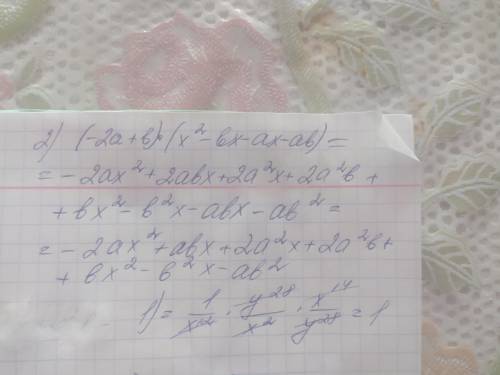 2) (-2a+b)·(x²-bx-ax-ab)=
=-2ax²+2abx+2a²x+2a²b+
+bx²-b²x-abx-ab²=
=-2ax²+abx+2a²x+2a²b+
+bx²-b²x-ab²
1)= 1/x² · y²⁸/x² · x¹⁴/y²⁸ = 1